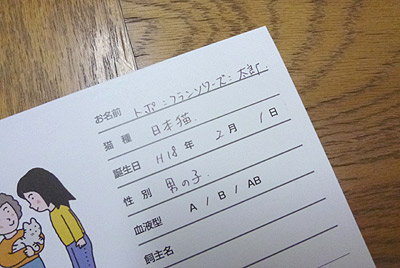 お名前 トポ:フランソワーズ:太郎
猫種 日本猫.
誕生日 H18 年 2 月 1 日
性別 男の子.
血液型 A / B / AB
飼主名